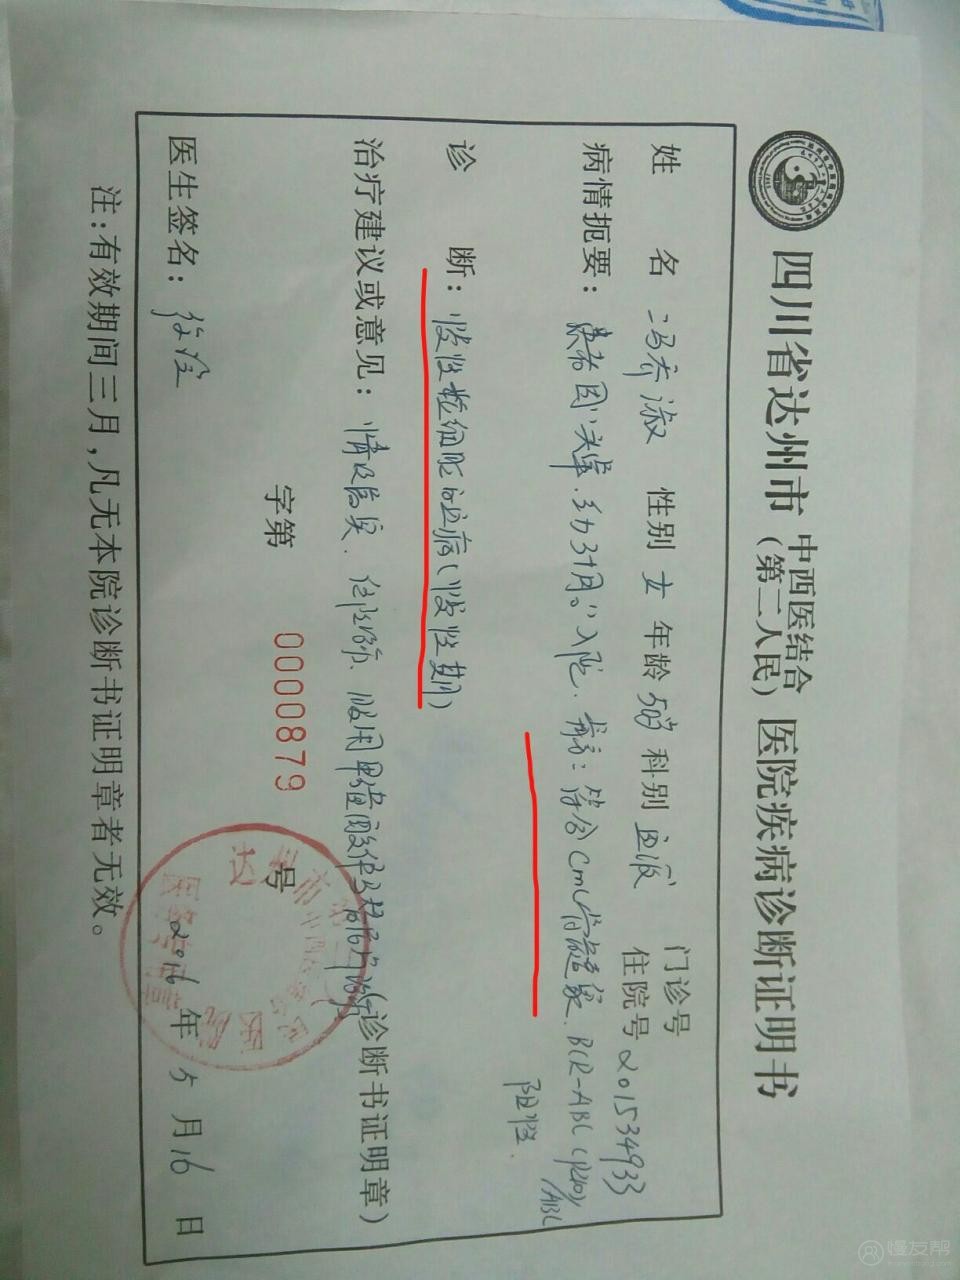 四川省达州市中西医结合（第二人民）医院疾病诊断证明书
门诊号
姓 名 冯乔淑 性别 女 年龄 50岁 科别 血液 住院号 201534933
病情扼要：患者因"头晕、乏力3+月。"入院. 符合CML骨髓象. BCR-ABL(P210)/ABL
阳性.
诊 断：慢性粒细胞白血病(慢性期)
治疗建议或意见：住院 服用甲磺酸伊马替尼片(诊断书证明章)
字第 0000879 号
医生签名： 2016 年 5 月 16 日
注:有效期间三月,凡无本院诊断书证明章者无效。
慢友帮